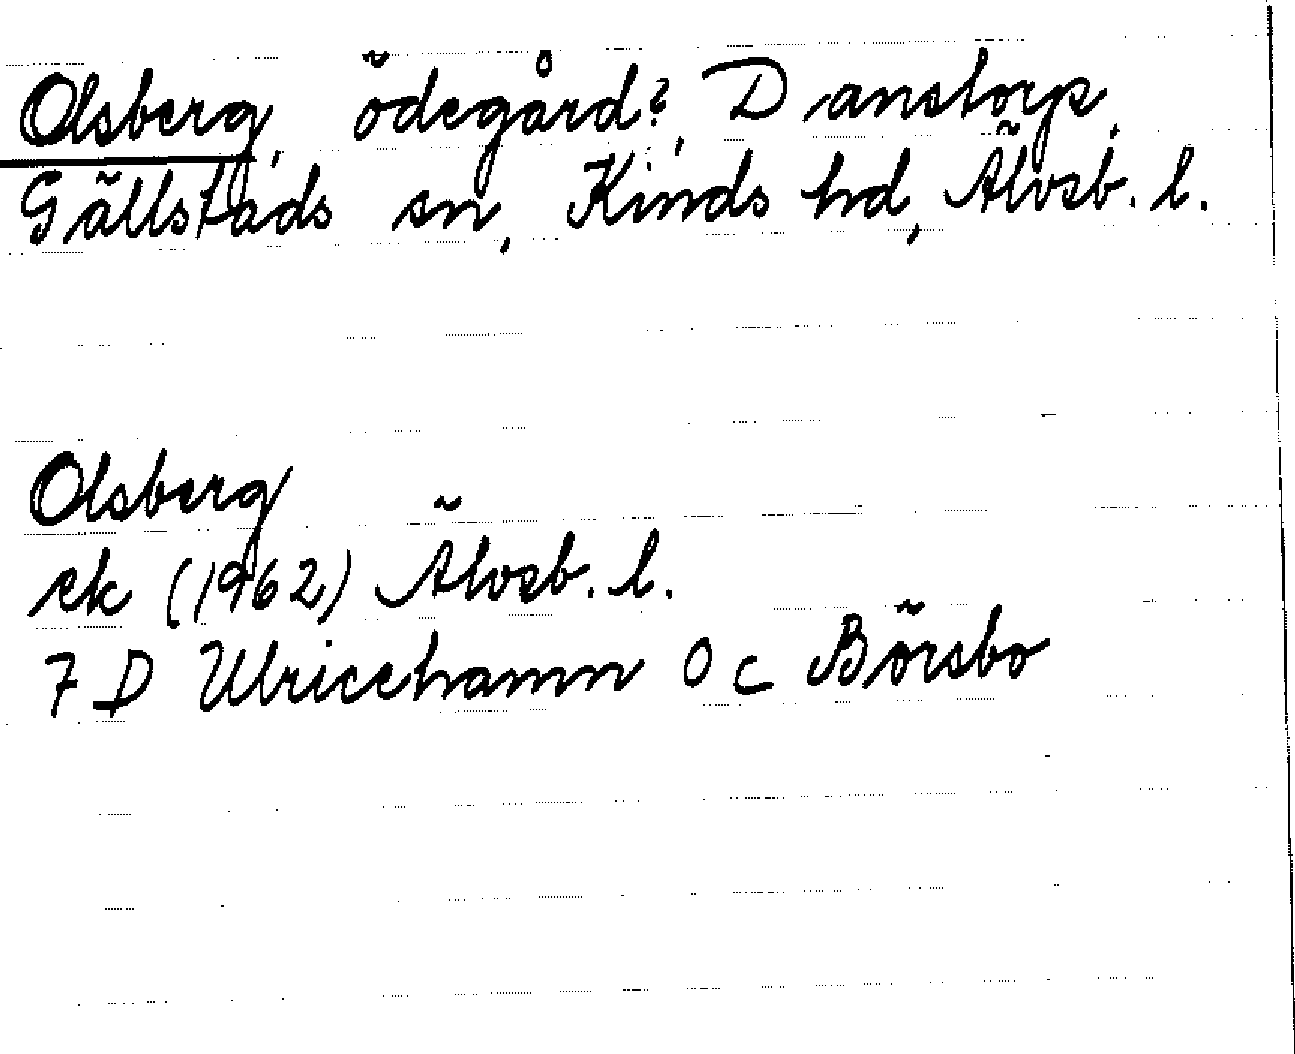 Olsberg, ödegård?, Danstorp,
Gällstads sn, Kinds hd, Älvsb. l.
Olsberg
ek (1962) Älvsb. l.
7 D Ulricehamn 0 c Börsbo